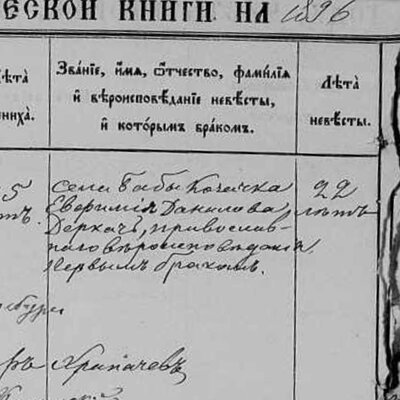 ЕСКОЙ КНИГИ НА 1896
ЛѢТА
НИХА.
ЗВАНІЕ, ИМЯ, ОТЧЕСТВО, ФАМИЛІЯ
И ВѢРОИСПОВѢДАНІЕ НЕВѢСТЫ,
И КОТОРЫМЪ БРАКОМЪ.
ЛѢТА
НЕВѢСТЫ.
5
тъ.
села Бабы Козачка
Евфимія Данилова
Деркачъ, православ-
наго вѣроисповѣданія,
первымъ бракомъ.
22
лѣтъ
ръ Храпачевъ